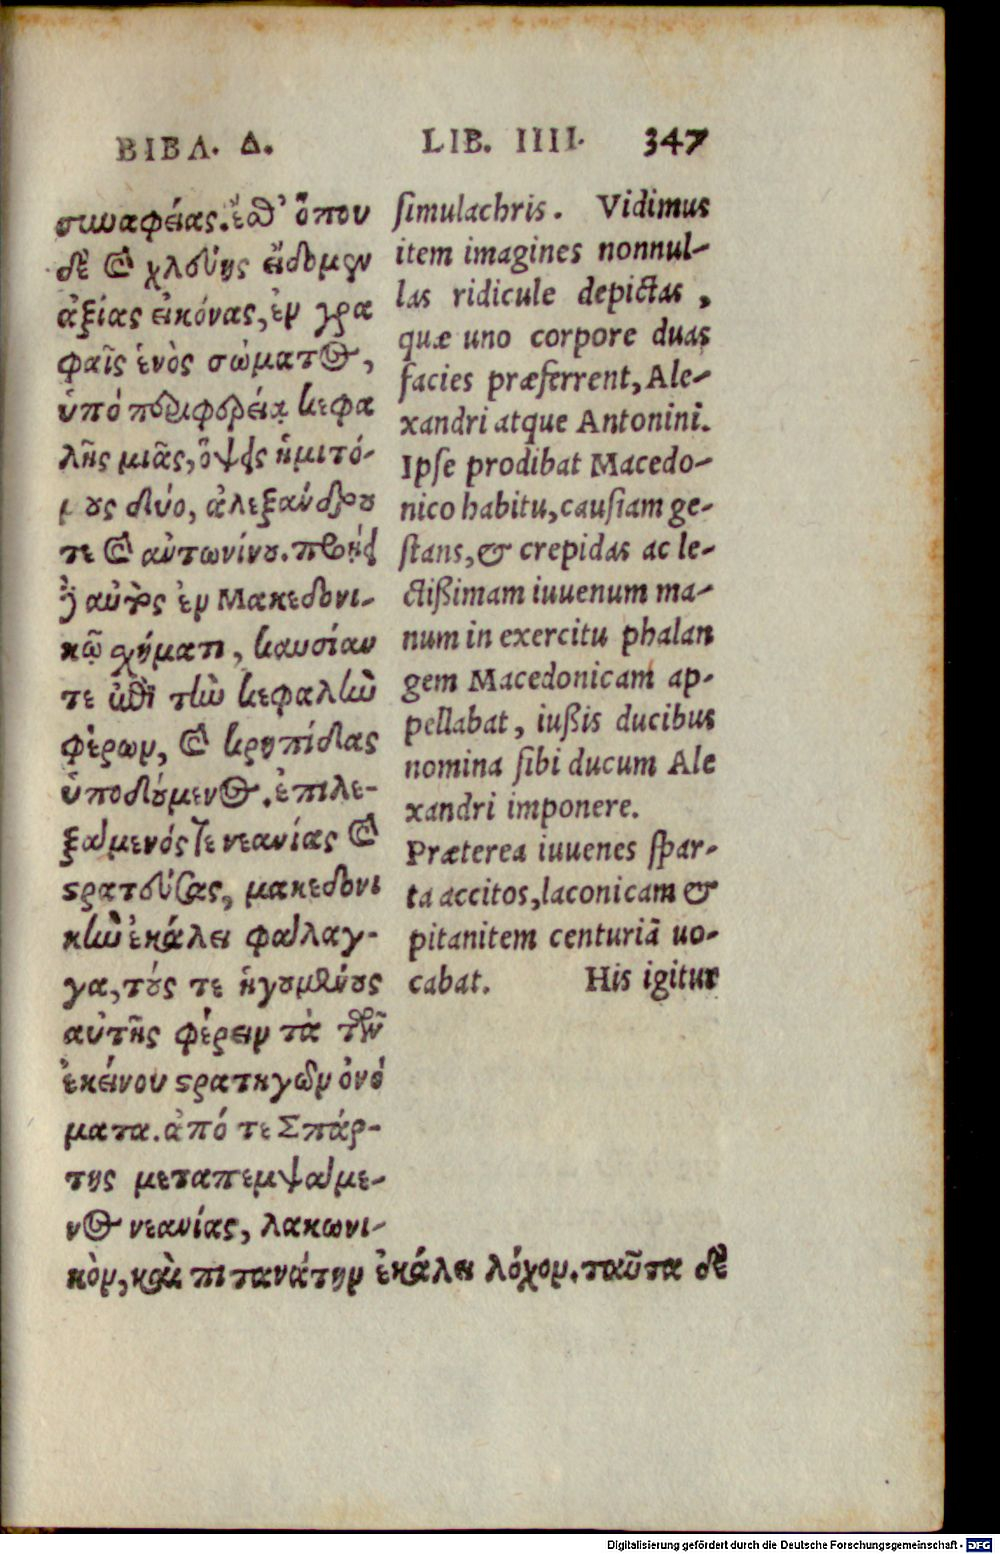 ΒΙΒΛ. Δ.
συναφείας. ἔσθ' ὅπου
δὲ καὶ χλεύης εἴδομεν
ἀξίας εἰκόνας, ἐν γρα
φαῖς ἑνὸς σώματος,
ὑπὸ περιφορείᾳ κεφα
λῆς μιᾶς, ὄψεις ἡμιτό-
μους δύο, ἀλεξάνδρου
τε καὶ αὐτωνίνου. προῄει
δ' αὐτὸς ἐν Μακεδονι-
κῷ χήματι, καυσίαν
τε ἐπὶ τὴν κεφαλὴν
φέρων, καὶ κρηπίδας
ὑποδούμενος. ἐπιλε-
ξάμενός τε νεανίας καὶ
στρατεύσας, μακεδονι
κὴν ἐκάλει φάλαγ-
γα, τούς τε ἡγουμένους
αὐτῆς φέρειν τὰ τῶν
ἐκείνου στρατηγῶν ὀνό
ματα. ἀπό τε Σπάρ-
της μεταπεμψάμε-
νος νεανίας, λακωνι-
κὸν, καὶ πιτανάτην ἐκάλει λόχον. ταῦτα δὲ
LIB. IIII. 347
simulachris. Vidimus
item imagines nonnul-
las ridicule depictas,
quæ uno corpore duas
facies præferrent, Ale-
xandri atque Antonini.
Ipse prodibat Macedo-
nico habitu, causiam ge-
stans, & crepidas ac le-
ctißimam iuuenum ma-
num in exercitu phalan
gem Macedonicam ap-
pellabat, iußis ducibus
nomina sibi ducum Ale
xandri imponere.
Præterea iuuenes spar-
ta accitos, laconicam &
pitanitem centuriã uo-
cabat. His igitur
Digitalisierung gefördert durch die Deutsche Forschungsgemeinschaft - DFG